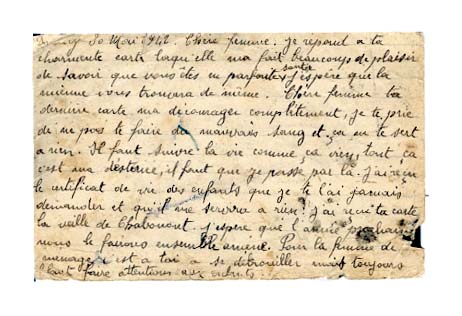 30 Mai 1942. Chère femme. je repond a ta
charmente carte laqu'elle ma fait beaucoups de plaisir
de savoir que vous êtes en parfaite santer j'espère que la
mienne vous trouvera de même. Chère femme ta
dernière carte ma decourager complitement, je te prie
de ne pas te faire du mauvais sang et ça ne te sert
a rien. Il faut suivre la vie comme ça vien, tout ça
c'est ma destenée, il faut que je passe par la. j'ai reçu
le certificat de vie des enfants que je te l'ai jamais
demander et qu'il me servira a rien. j'ai reçu ta carte
la veille de j'espere que l'année prochaine
nous le fairons ensemble Pour la femme de
menage c'est a toi a se debrouiller mais toujours
faire attentions aux enfants